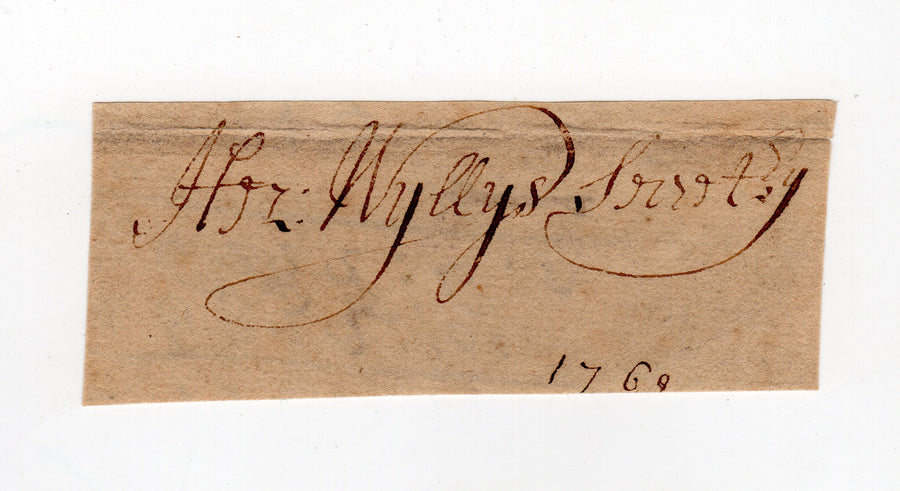 Hez: Wyllys Secret:ry
1768